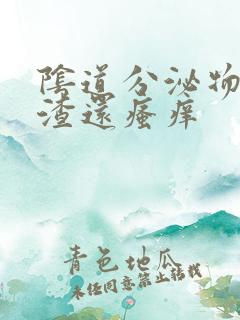 陰道分泌物
渣還瘙痒
青色地瓜
未经同意禁止转载